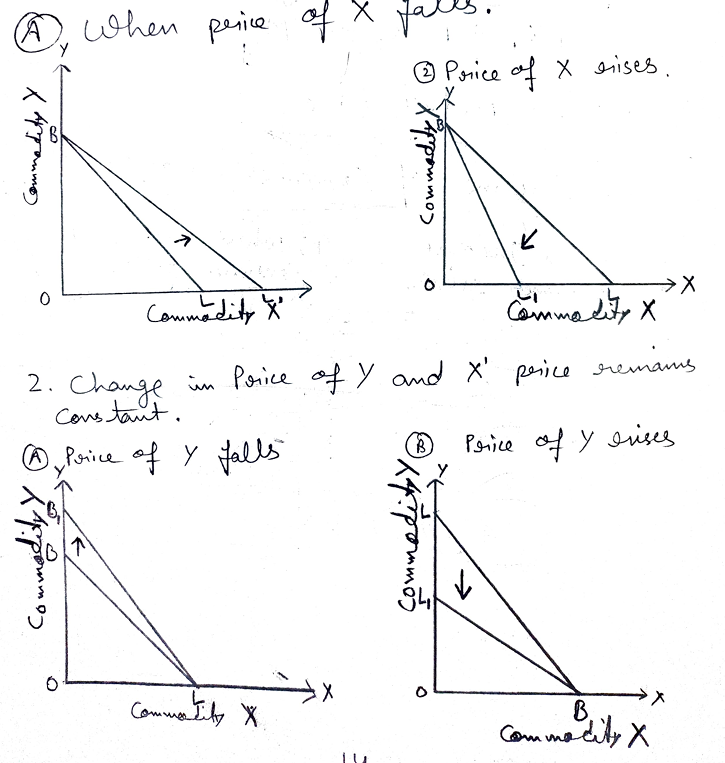 Ⓐ When price of X falls.
Y
Commodity Y
B
O
L
L'
Commodity X
② Price of X rises.
Y
Commodity Y
B
O
L1
L
X
Commodity X
2. Change in Price of Y and X' price remains
constant.
Ⓐ Price of Y falls
Y
Commodity Y
B1
B
O
L
X
Commodity X
Ⓑ Price of Y rises
Y
Commodity Y
L
L1
O
B
X
Commodity X